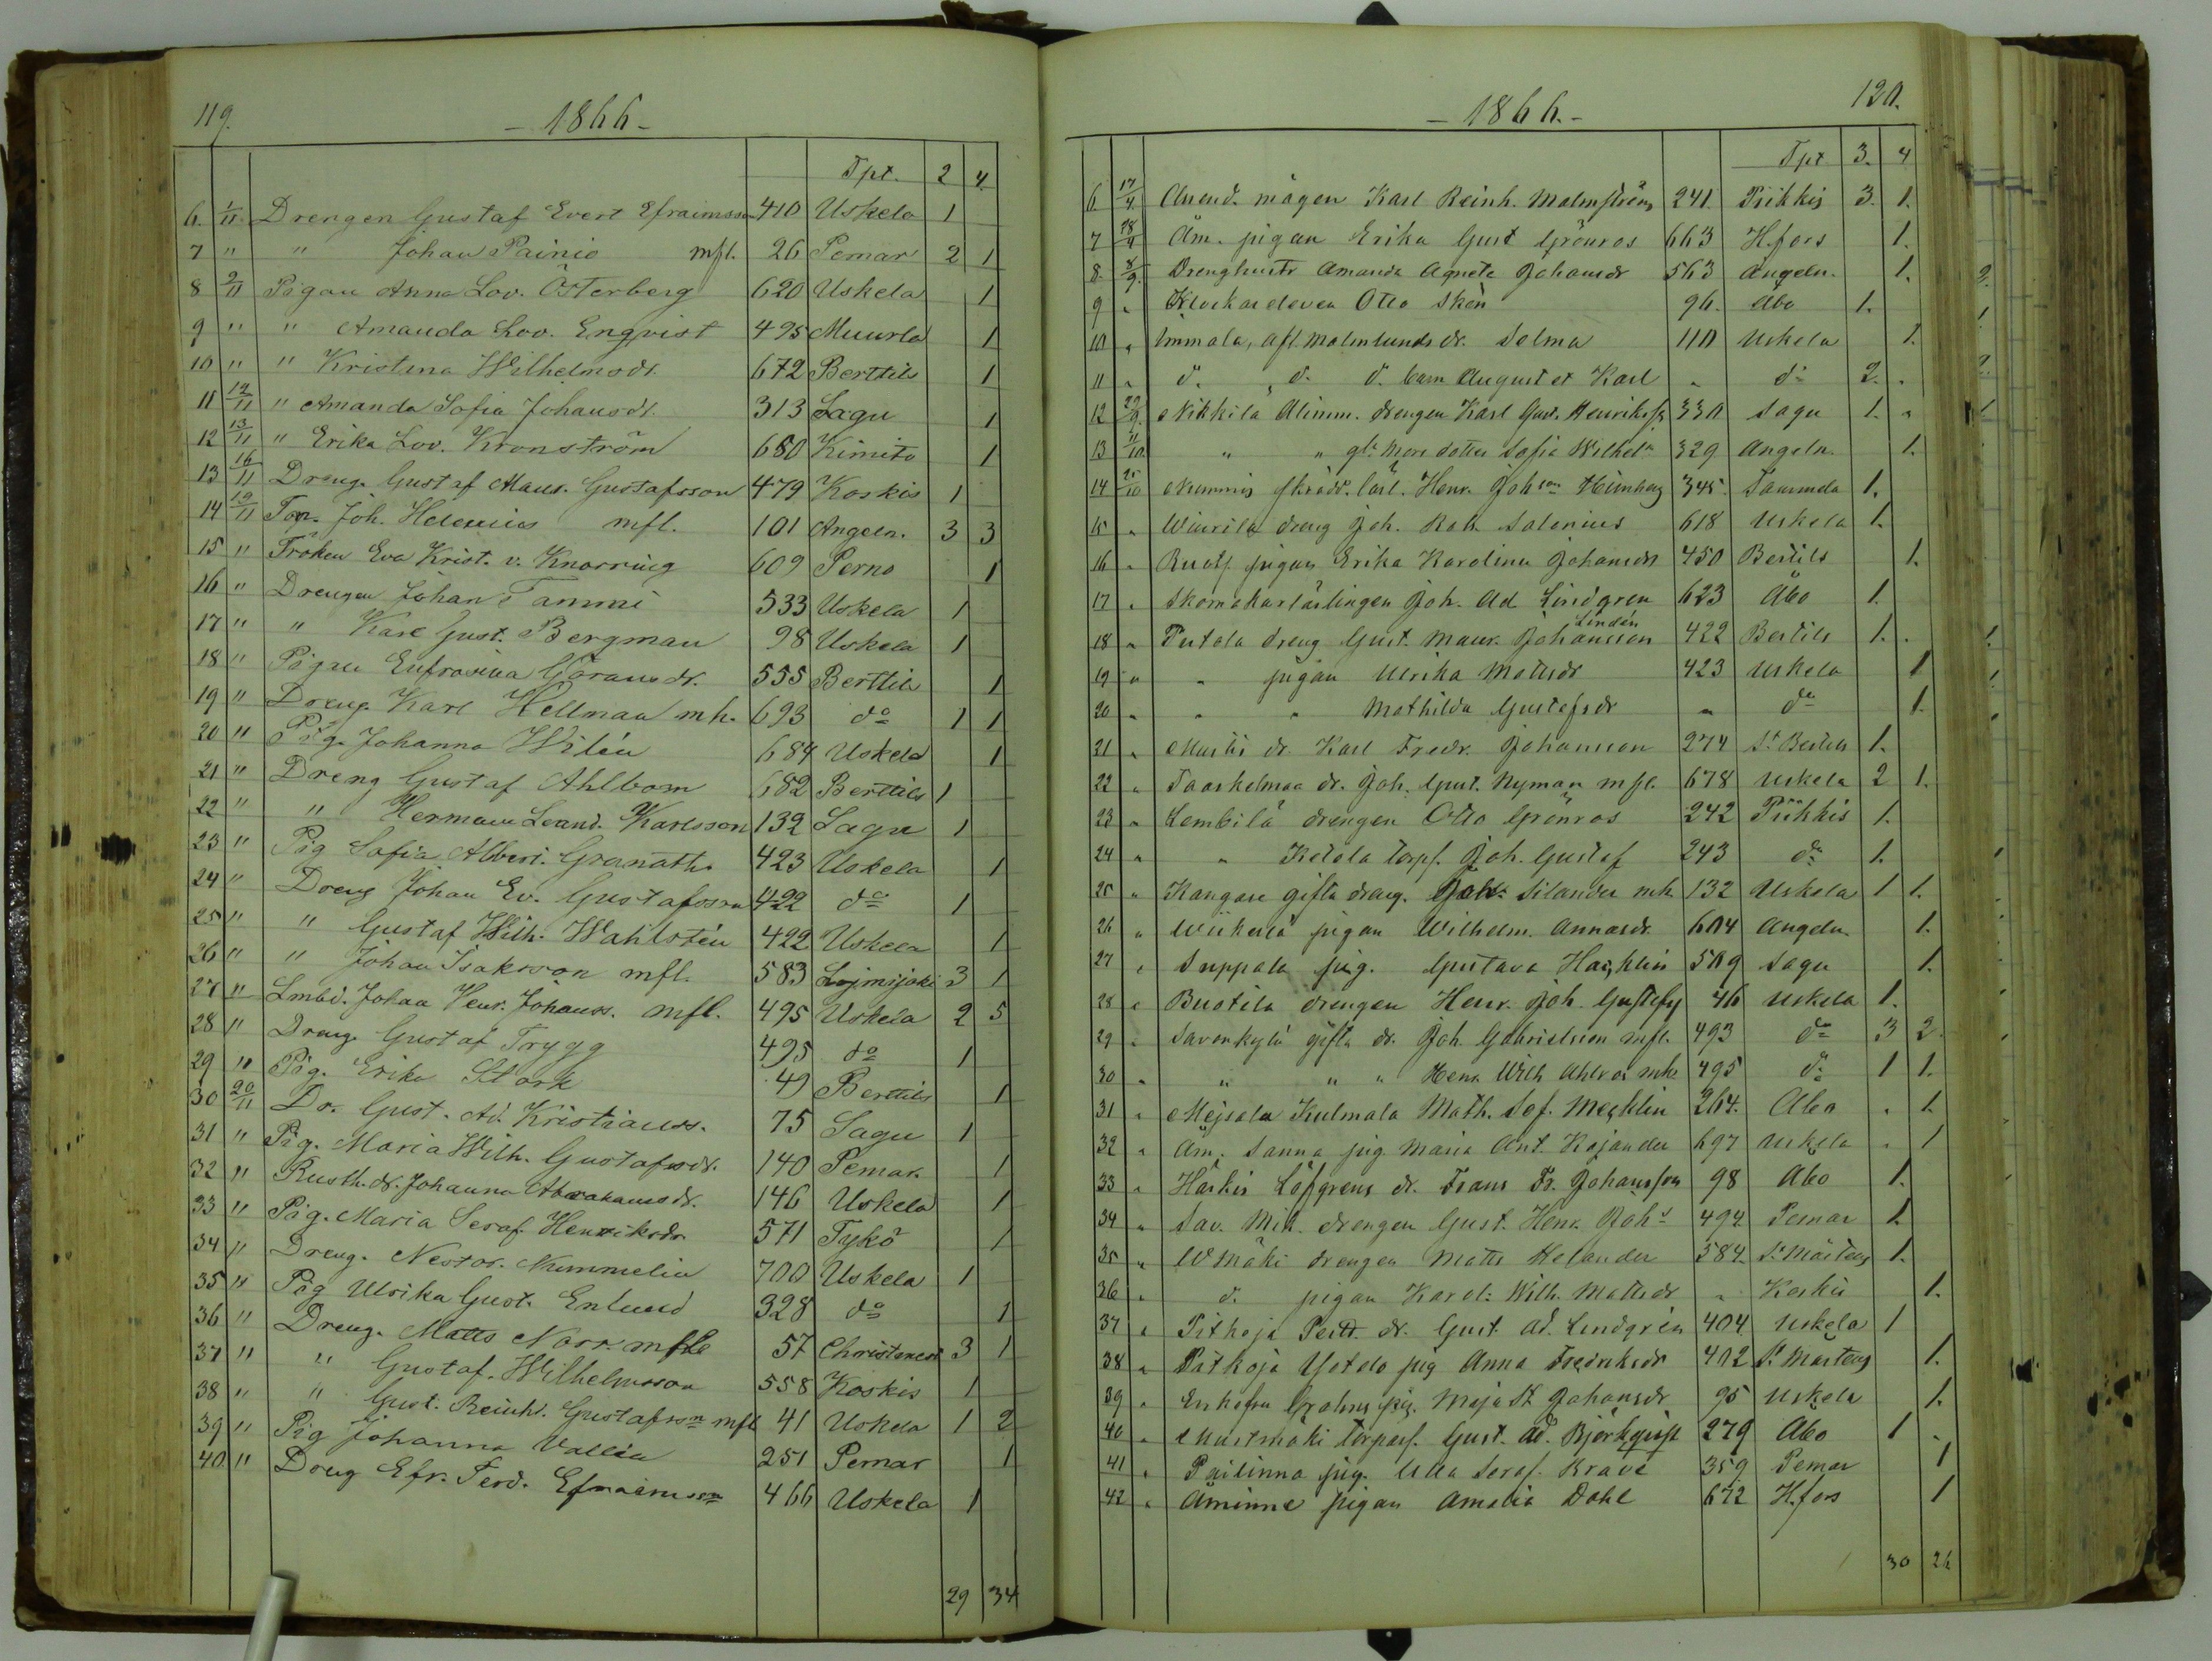 119.
- 1866 -
Tpt. 2 4.
6. 1/11 Drengen Gustaf Evert Efraimsson 410 Uskela 1
7 " " Johan Painio mfl. 26 Pemar 2 1
8 2/11 Pigan Anna Lov. Österberg 620 Uskela 1
9 " " Amanda Lov. Enqvist 495 Muurla 1
10 " " Kristina Wilhelmsdr. 672 Berttils 1
11 12/11 " Amanda Sofia Johansdr. 313 Sagu 1
12 13/11 " Erika Lov. Kronström 680 Kimito 1
13 16/11 Dreng. Gustaf Maur. Gustafsson 479 Koskis 1
14 19/11 Torp. Joh. Helenius mfl. 101 Angeln. 3 3
15 " Fröken Eva Krist. v. Knorring 609 Perno 1
16 " Drengen Johan Tammi 533 Uskela 1
17 " " Karl Gust. Bergman 98 Uskela 1
18 " Pigan Eufrosina Göransdr. 555 Berttils 1
19 " Dreng. Karl Hellman mh. 693 do 1 1
20 " Pig. Johanna Wilén 684 Uskela 1
21 " Dreng Gustaf Ahlbom 682 Berttils 1
22 " " Herman Leand. Karlsson 132 Sagu 1
23 " Pig Sofia Albert. Granath 423 Uskela 1
24 " Dreng Johan Ev. Gustafsson 422 do 1
25 " " Gustaf Wilh. Wahlstén 422 Uskela 1
26 " " Johan Isaksson mfl. 583 Lojmijoki 3 1
27 " Lmbd. Johan Henr. Johanss. mfl. 495 Uskela 2 5
28 " Dreng Gustaf Trygg 495 do 1
29 " Pig. Erika Stark 49 Berttils 1
30 20/11 Dr. Gust. Ad. Kristianss. 75 Sagu 1
31 " Pig. Maria Wilh. Gustafsdr. 140 Pemar. 1
32 " Rusth. dr. Johanna Abrahamsdr. 146 Uskela 1
33 " Pig. Maria Seraf. Henriksdr. 571 Tykö 1
34 " Dreng. Nestor. Nummelin 700 Uskela 1
35 " Pig Ulrika Gust. Enlund 328 do 1
36 " Dreng. Matts Norr. mfl 57 Christinest 3 1
37 " " Gustaf. Wilhelmsson 558 Koskis 1
38 " " Gust. Reinh. Gustafson mfl 41 Uskela 1 2
39 " Pig Johanna Vallin 251 Pemar 1
40 " Dreng Efr. Ferd. Efraimsson 466 Uskela 1
29 34
120.
- 1866. -
Tpt 3. 4
6. 17/4 mågen Karl Reinh. Malmström 241. Piikkis 3. 1.
7 28/4 Åm. pigan Erika Gust Grönros 663 H.fors 1.
8 8/9. Drenghustr Amanda Agneta Johansdr 563 Angeln. 1.
9 " Klockareleven Otto Skön 96. Åbo 1.
10 " Immala, afl. Malmlunds dr. Selma 110 Uskela 1.
11 " d. d. d. barn August et Karl " do 2. "
12 29/9. Nikkilä Alinm. drengen Karl Gust. Henrikss 330 Sagu 1. "
13 1/10. " " dotter Sofia Wilhel 329 Angeln. 1.
14 25/10 Nummis skrädd. lärl. Henr. Johson Heimberg 345. 1.
15 " Wiurila dreng Joh. Rob. Salenius 618 Uskela 1.
16 " pigan Erika Karolina Johansdr 450 Bertils 1.
17 " Skomakarlärlingen Joh. Ad Lindgren 623 Åbo 1.
18 " dreng Gust. Maur. Johansson Lindén 422 Bertils 1.
19 " " pigan Ulrika Mattsdr 423 Uskela 1
20 " " " Mathilda Gustafsdr " do 1.
21 " dr. Karl Fredr. Johansson 274 St Bertils 1.
22 " dr. Joh. Gust. Nyman mfl. 678 Uskela 2 1.
23 " Lembilä drengen Otto Grönros 242 Piikkis 1.
24 " " Ketola torpf. Joh. Gustaf 243 do 1.
25 " Kangare gifta dreng. Joh. Silander mh. 132 Uskela 1 1.
26 " pigan Wilhelm. Annasdr 604 Angeln. 1.
27 " Suppala pig. Gustava Hacklin 509 Sagu 1.
28 " Buotila drengen Henr. Joh. Gustafs 46 Uskela 1.
29 " Savenkylä gifta dr. Joh. Gabrielsson mfl. 493 do 3 2.
30 " " " " Henr. Wilh Ahlros mh 495 do 1 1.
31 " Mejsala Kulmala Math. Sof. Mecklin 264. Åbo " 1.
32 " Åm. Sanna pig Maria Ant. Kajander 697 Uskela " 1
33 " Härkis Löfgrens dr. Frans Fr. Johansson 98 Åbo 1.
34 " Sav. drengen Gust. Henr. Johs 494 Pemar 1.
35 " Wmäki drengen Matts Helander 584. St Mårtens 1.
36 " d. pigan Karol. Wilh. Mattsdr " Koskis 1.
37 " Pitkoja Pertt. dr. Gust. Ad. Lindgrén 404 Uskela 1
38 " Pitkoja Yotelo pig Anna Fredriksdr 402 St Mårtens 1.
39 " Enkefru pig. Maja St Johansdr 95 Uskela 1.
40 " torpars. Gust. Ad. Björkqvist 279 Åbo 1 "
41 " Pailinna pig. Ulla Seraf. Krave 359. Pemar 1
42 " Åminne pigan Amalia Dahl 672 H.fors 1
30 26